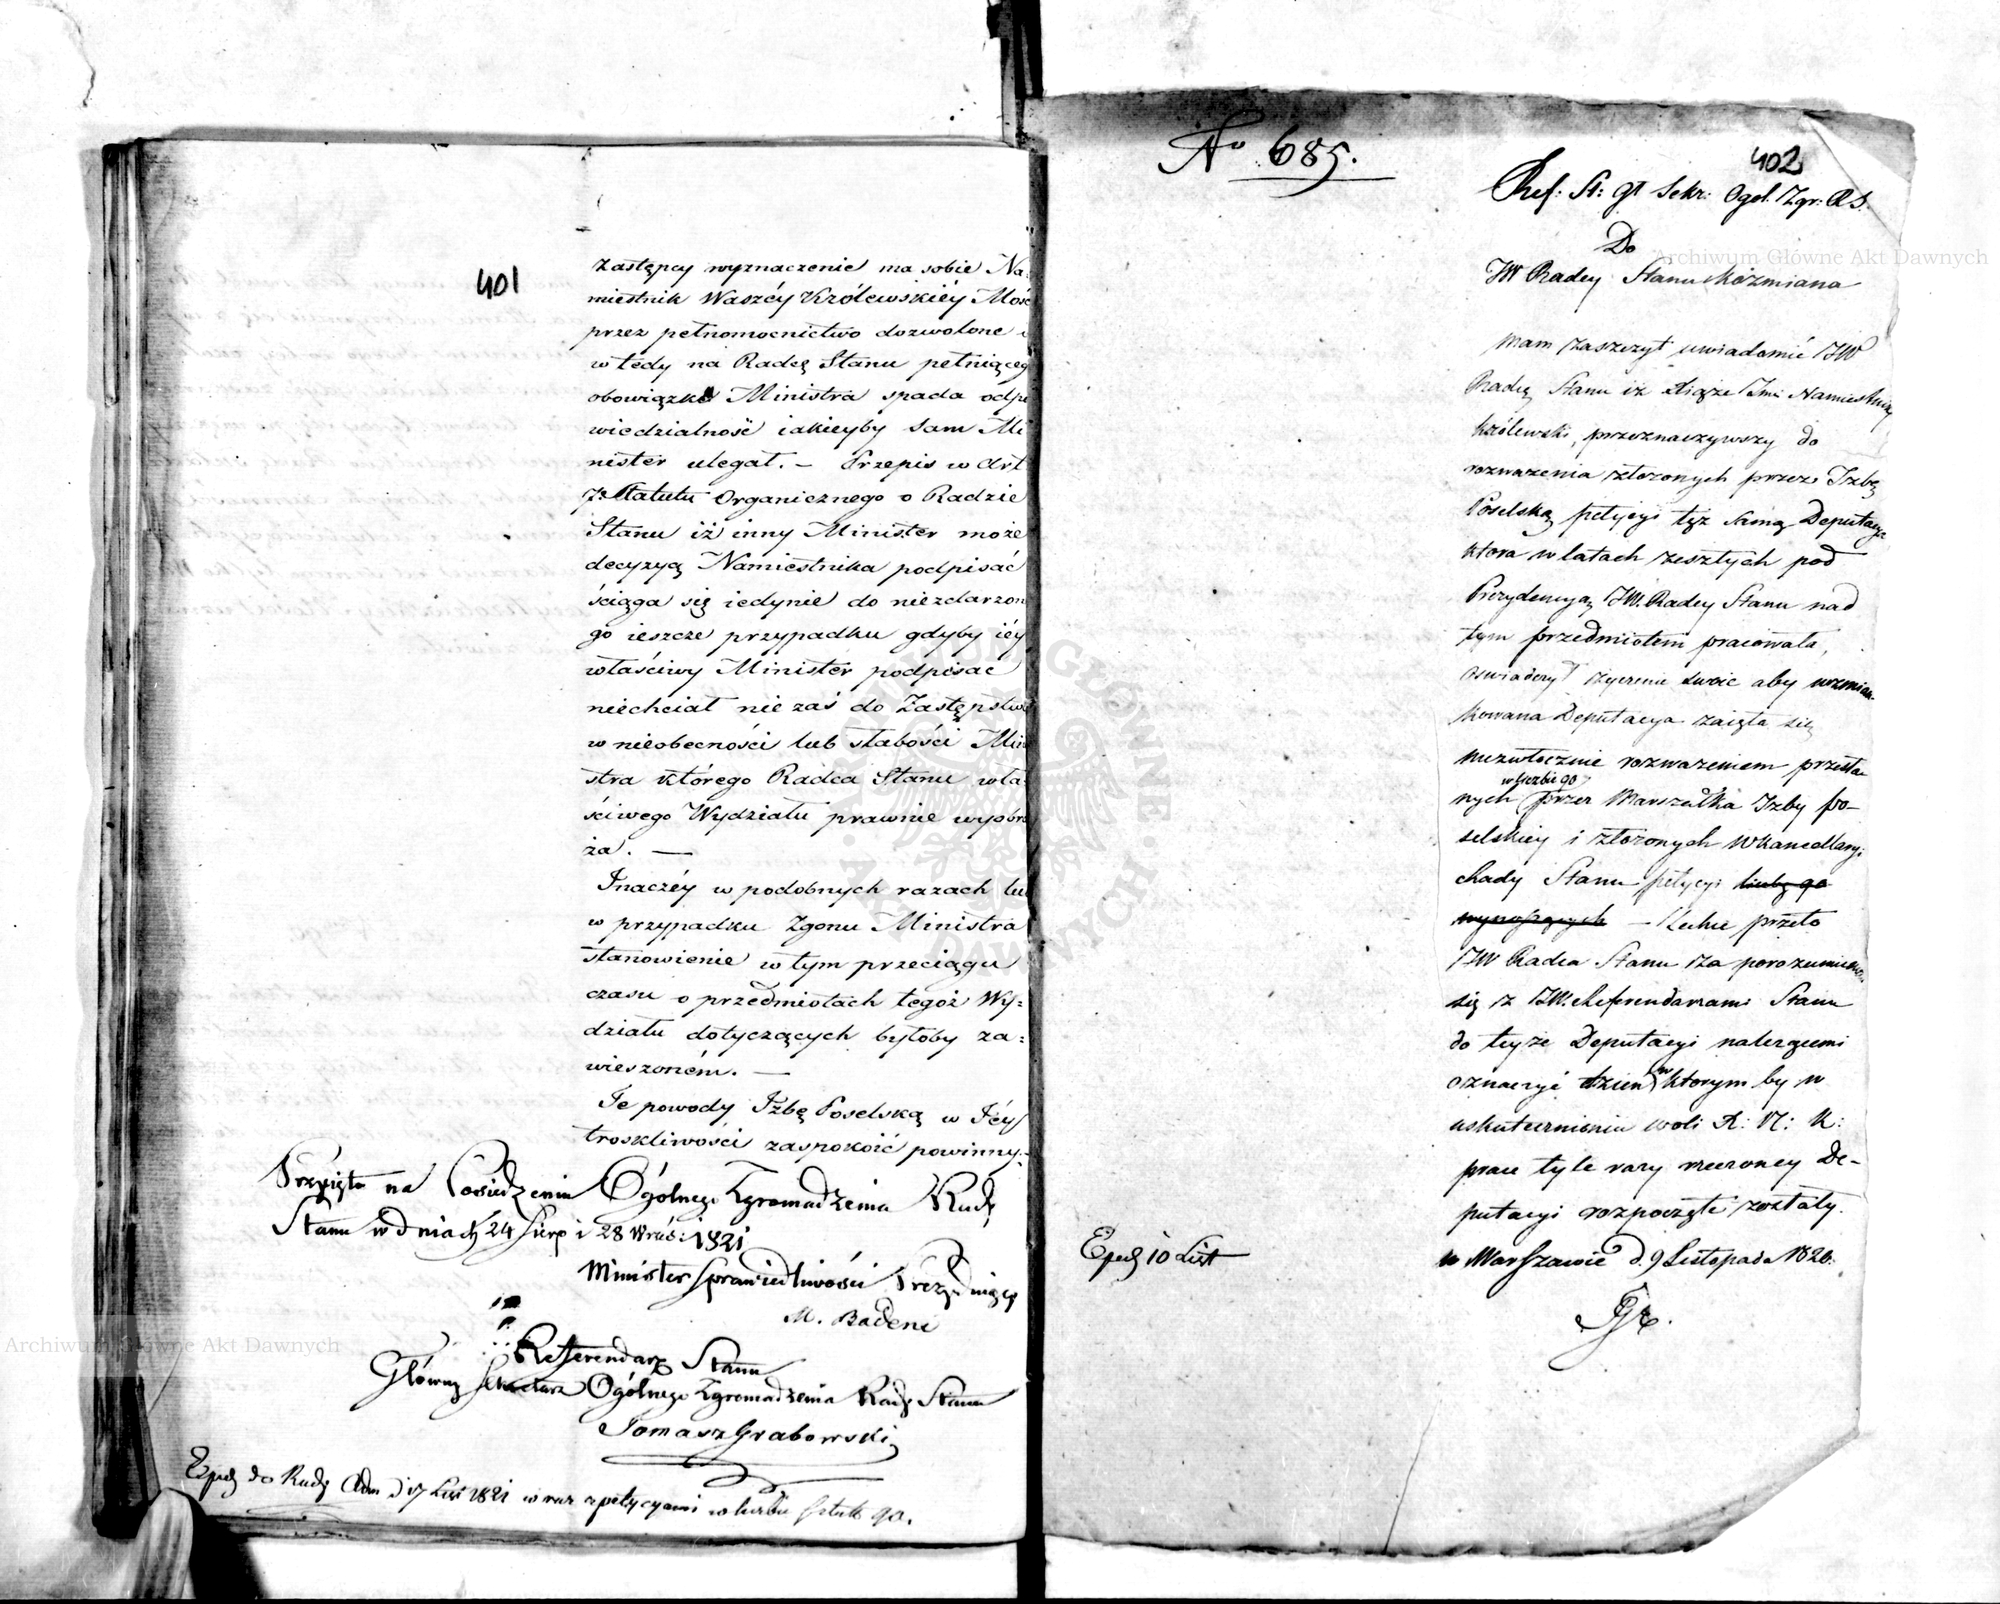 401
Zastępcy wyznaczenie ma sobie Na
miestnik Waszéy Królewskiéy Mośc
przez pełnomocnictwo dozwolone i
wtedy na Radcę Stanu pełniąceg
obowiązki Ministra spada odpo
wiedzialność iakieyby sam Mi
nister ulegał. — Przepis w Art
7. Statutu Organicznego o Radzie
Stanu iż inny Minister może
decyzyą Namiestnika podpisać
ściąga się iedynie do niezdarzon
go ieszcze przypadku gdyby iéy
właściwy Minister podpisać
niechciał nie zaś do Zastępstwa
w nieobecności lub słabości Mini
stra którego Radca Stanu wła
ściwego Wydziału prawnie wyobra
ża. —
Inaczéy w podobnych razach lub
w przypadku Zgonu Ministra
stanowienie w tym przeciągu
czasu o przedmiotach tegoż Wy=
działu dotyczących byłoby za=
wieszoném. —
Te powody Izbę Poselską w Jéy
troskliwości zaspokoić powinny.
Przyięto na Posiedzeniu Ogólnego Zgromadzenia Rady
Stanu w dniach 24 Sierp i 28 Wrześ: 1821
Minister Sprawiedliwości Prezyduiący
M. Badeni
Referendarz Stanu
Główny Sekretarz Ogólnego Zgromadzenia Rady Stanu
Tomasz Grabowski
Exped do Rady Adm d 17 List 1821 wraz z petycyami w liczbie sztuk 90.
No 685.
402
Ref: St: gł Sekr: Ogol. Zgr: RS.
Do
JW Radcy Stanu Koźmiana
Mam zaszczyt uwiadomić JW
Radcę Stanu iż Xiąże Jmć Namiestnik
Królewski, przeznaczywszy do
rozważenia złożonych przez Izbę
Poselską petycyi tęż samą Deputacyą
która w latach zeszłych pod
Prezydencyą JW. Radcy Stanu nad
tym przedmiotem pracowała,
oświadczył życzenie swoie aby wzmian
kowana Deputacya zaięła się
niezwłocznie rozważeniem przesła
w liczbie 90
nych przez Marszałka Izby po-
selskiey i złożonych w Kancellaryi
Rady Stanu petycyi liczbę 90
wynoszących — Zechce przeto
JW Radca Stanu za porozumieniem
się z JW. Referendarzami Stanu
do teyże Deputacyi należącemi
oznaczyć dzień w którym by w
uskutecznieniu woli X: N: K:
prace tyle razy rzeczoney De-
putacyi rozpoczęte zostały.
w Warszawie d. 9 Listopada 1820.
Exped 10 List